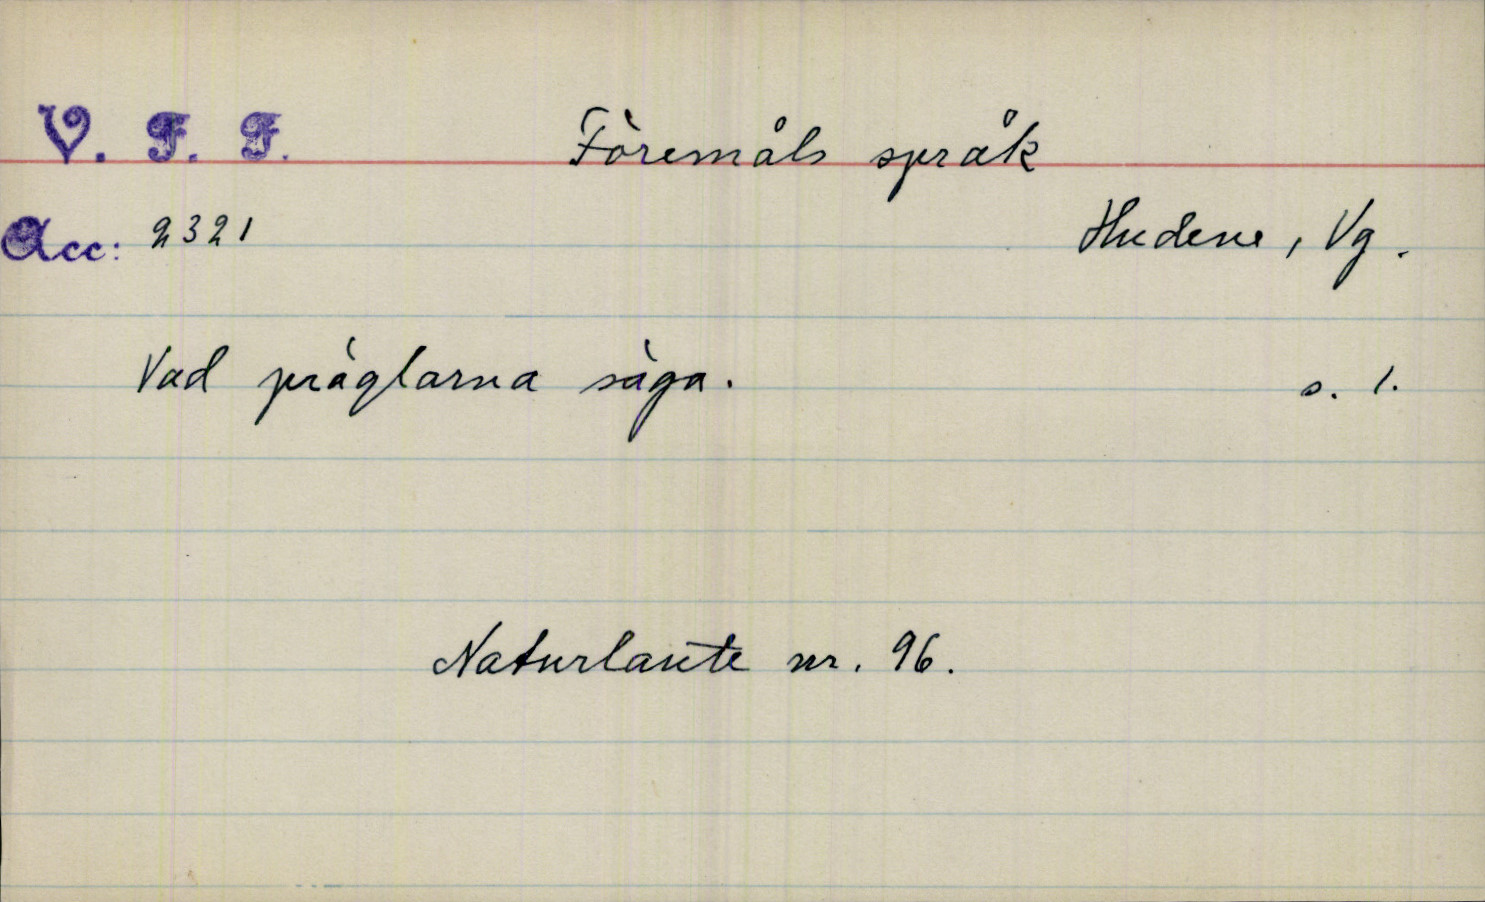 V. F. F.
Föremåls språk
Acc: 2321
Hudene, Vg.
Vad präglarna säga.
s. 1.
Naturlaute nr. 96.